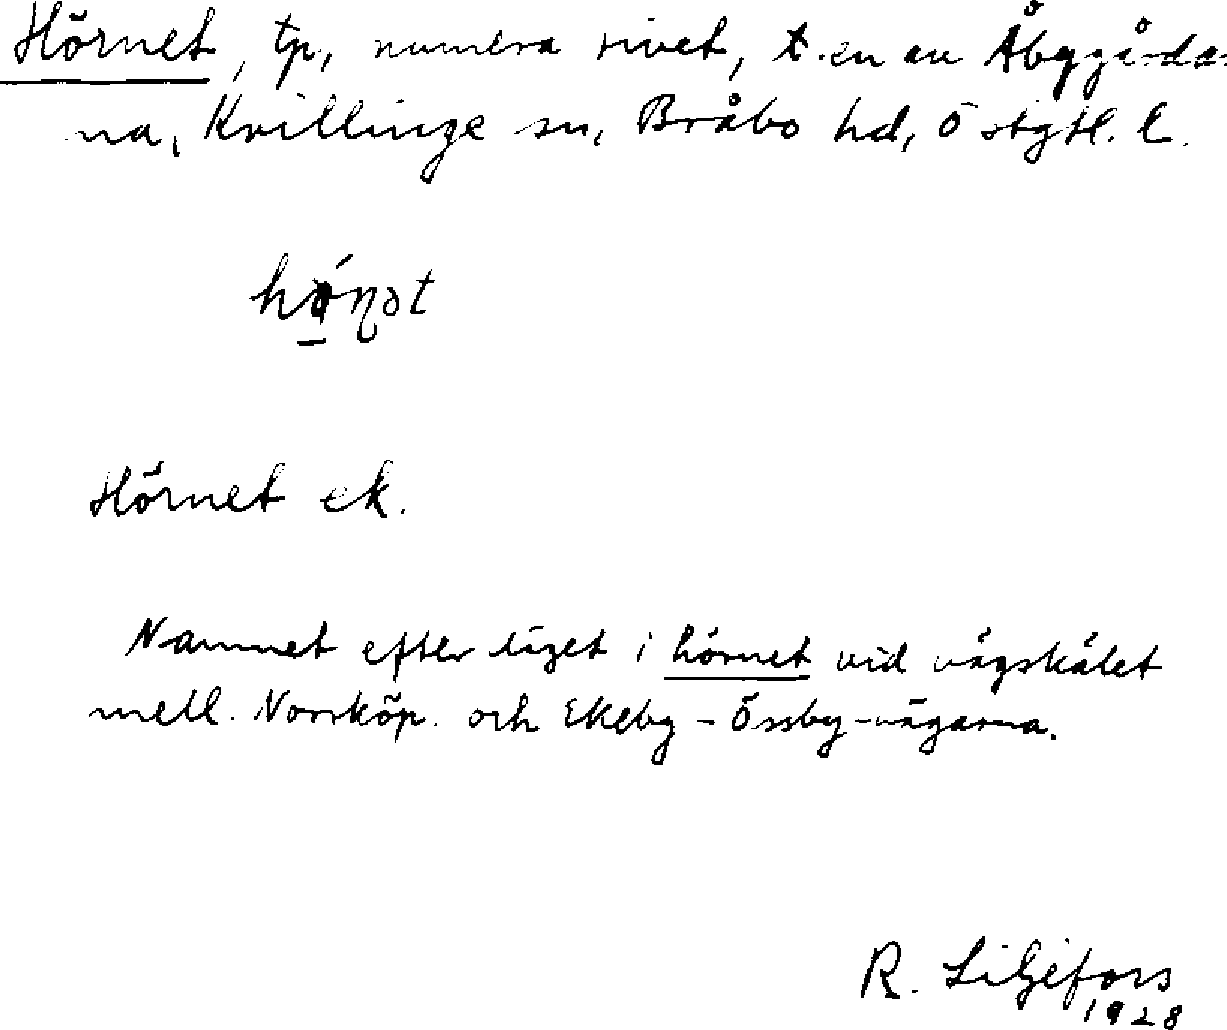 Hörnet, tp, numera rivet, t. en av Åbygårdar-
na, Kvillinge sn, Bråbo hd, Östgtl. l.
Hörnet ek.
Namnet efter läget i hörnet vid vägskälet
mell. Norrköp. och Ekeby - Össby-vägarna.
R. Liljefors
1928